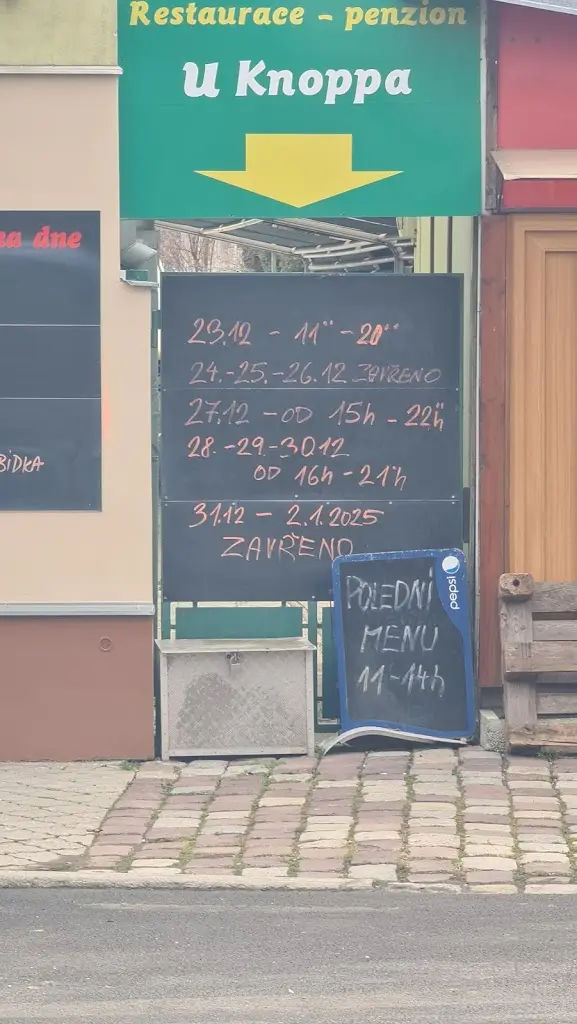 Restaurace - penzion
U Knoppa
na dne
BIDKA
23.12 - 11°° - 20°°
24.-25.-26.12 ZAVŘENO
27.12 - OD 15h - 22h
28.-29.-30.12
OD 16h - 21h
31.12 - 2.1.2025
ZAVŘENO
pepsi
POLEDNÍ
MENU
11-14h